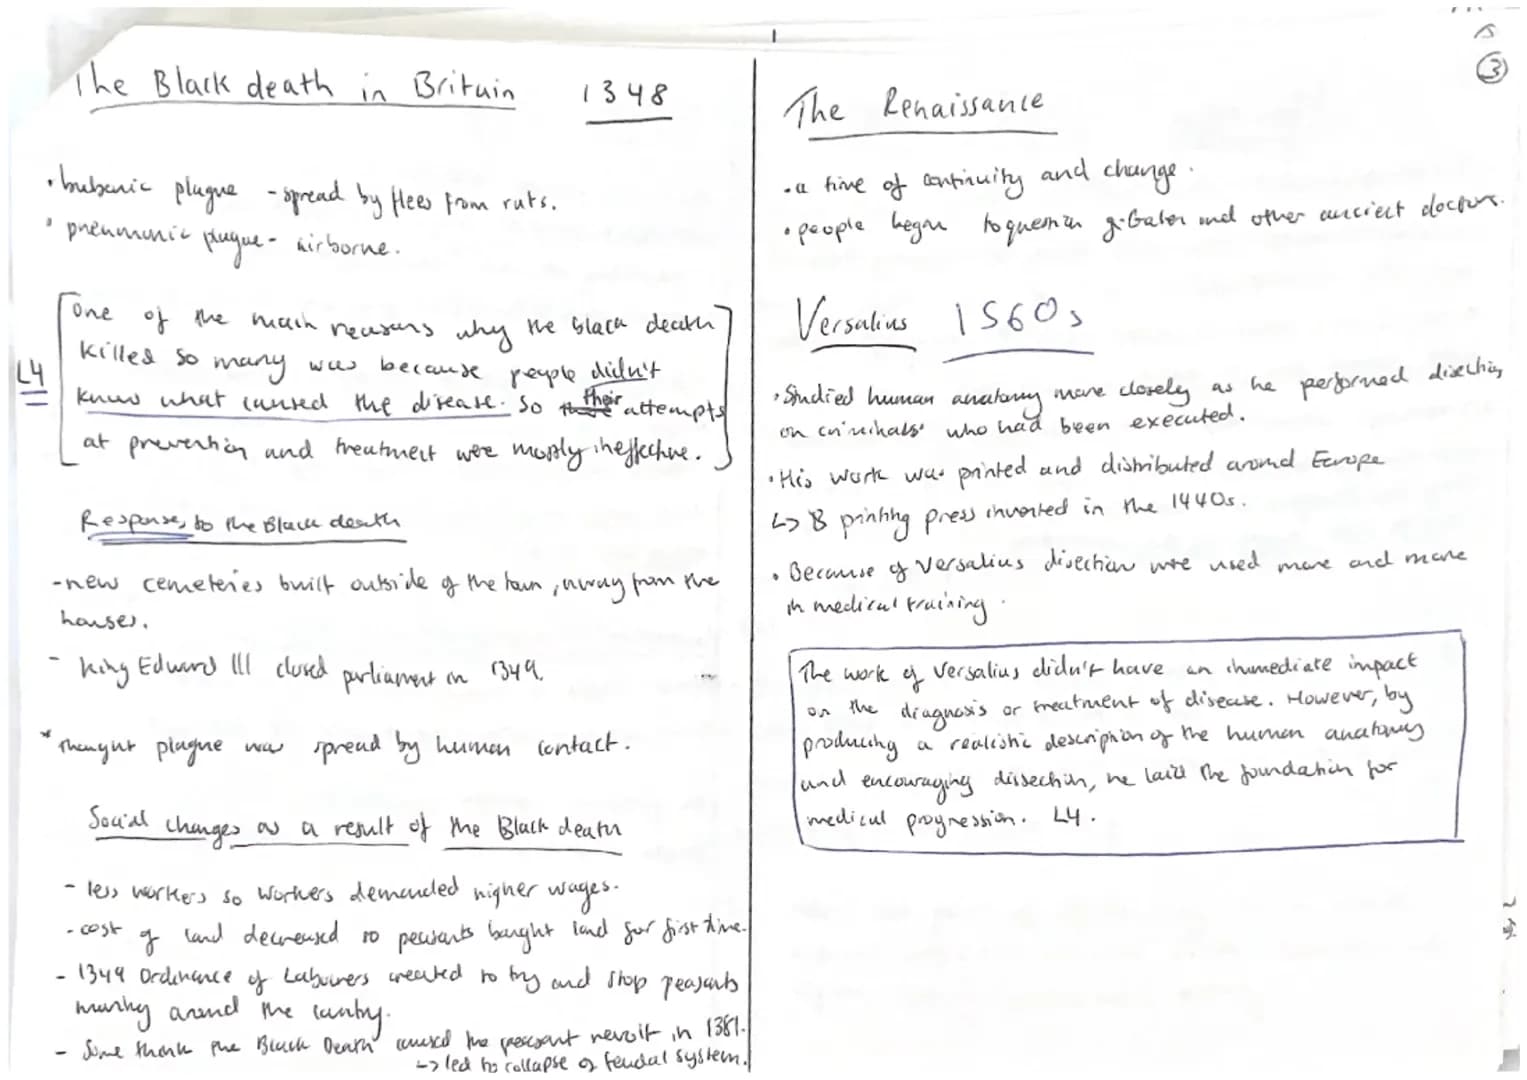 The Black death in Britain 1348
• bubonic plague - spread by flees from rats.
• pneumonic plague - airborne.
L4
One of the main reasons why the black death
killed so many was because people didn't
know what caused the disease. So their attempts
at prevention and treatment were mostly ineffective.
Responses to the Black death
- new cemeteries built outside of the town, away from the
houses.
- King Edward III closed parliament in 1349.
* Thought plague was spread by human contact.
Social changes as a result of the Black death
- less workers so workers demanded higher wages.
- cost of land decreased so peasants bought land for first time.
- 1349 Ordinance of Labourers created to try and stop peasants
moving around the country.
- Some think the Black Death caused the peasant revolt in 1381.
↳ led to collapse of feudal system.
3
The Renaissance
• a time of continuity and change.
• people began to question Galen and other ancient doctors.
Versalius 1560s
• Studied human anatomy more closely as he performed disections
on criminals who had been executed.
• His work was printed and distributed around Europe
↳ printing press invented in the 1440s.
• Because of Versalius disection were used more and more
in medical training.
The work of Versalius didn't have an immediate impact
on the diagnosis or treatment of disease. However, by
producing a realistic description of the human anatomy
and encouraging dissection, he laid the foundation for
medical progression. L4.